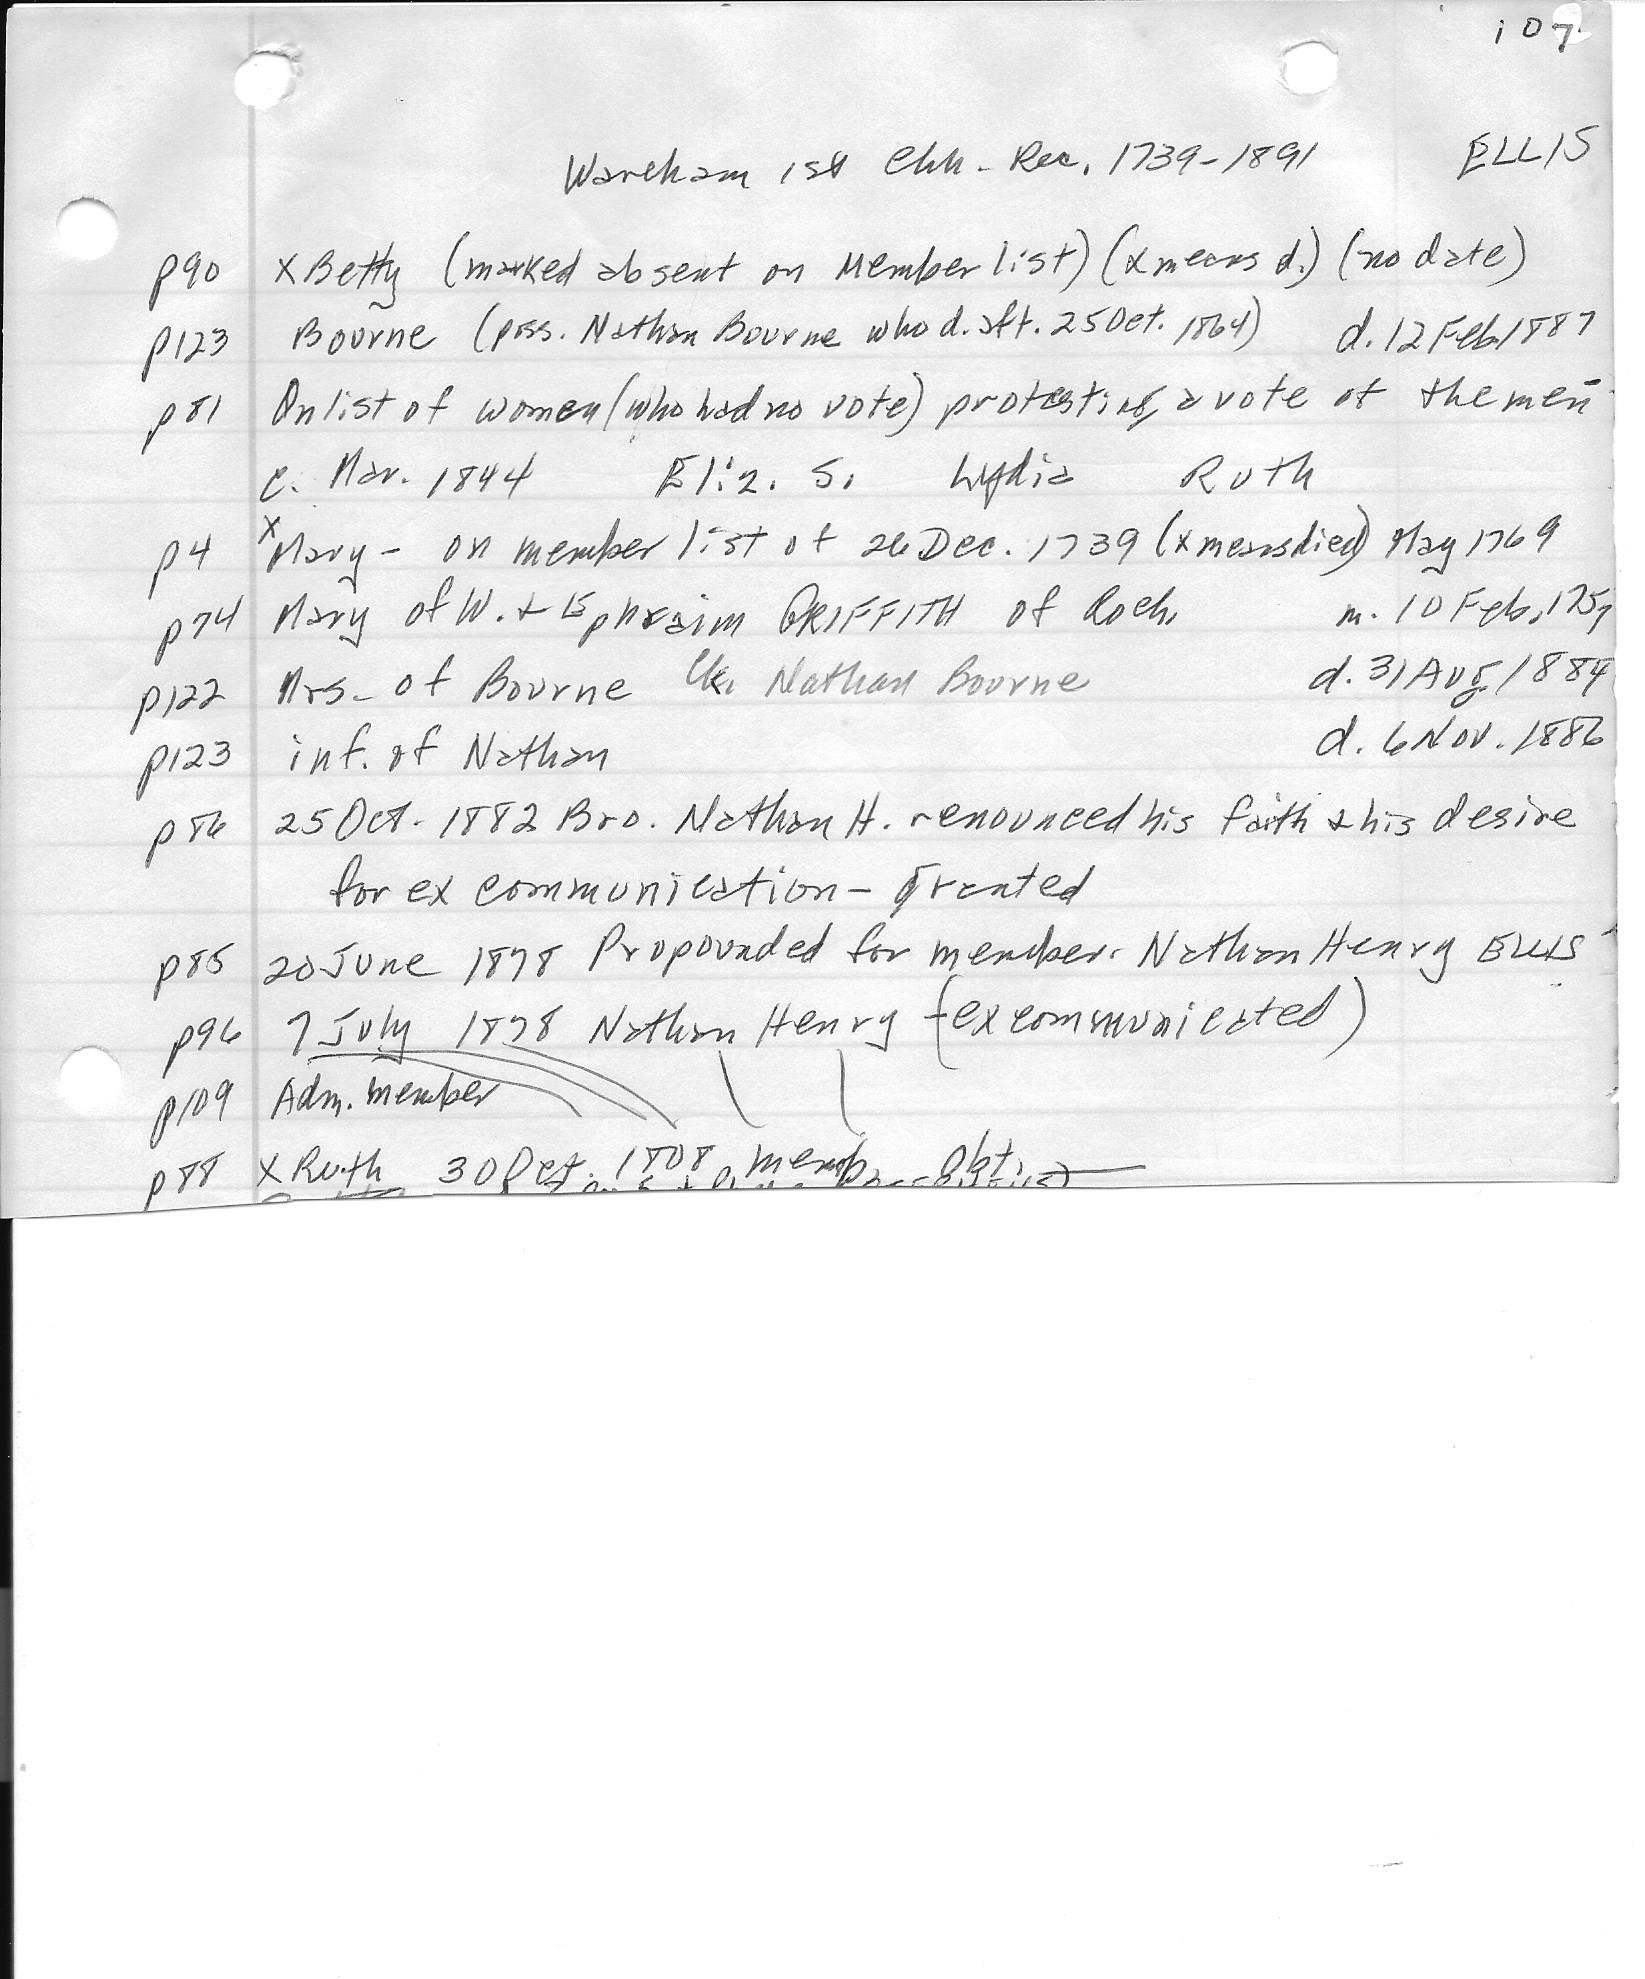 107
Wareham 1st Chh. Rec. 1739-1891 ELLIS
p90 x Betty (marked absent on Member list) (x means d.) (no date)
p123 Bourne (poss. Nathan Bourne who d. aft. 25 Oct. 1864) d. 12 Feb 1887
p81 On list of women (who had no vote) protesting a vote of the men-
c. Mar. 1844 Eliz. S. Lydia Ruth
p4 x Mary - on member list of 26 Dec. 1739 (x means died) May 1769
p74 Mary of W. & Ephraim GRIFFITH of Roch. m. 10 Feb. 1757
p122 Mrs. of Bourne Nathan Bourne d. 31 Aug 1884
p123 inf. of Nathan d. 6 Nov. 1886
p86 25 Oct. 1882 Bro. Nathan H. renounced his faith & his desire
for ex communication - granted
p85 20 June 1878 Propounded for member. Nathan Henry ELLIS
p96 7 July 1878 Nathan Henry - (excommunicated)
p109 Adm. member
p88 x Ruth 30 Oct. 1808